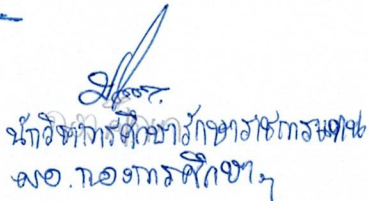 นักวิชาการศึกษารักษาราชการแทน
ผอ.กองการศึกษาฯ